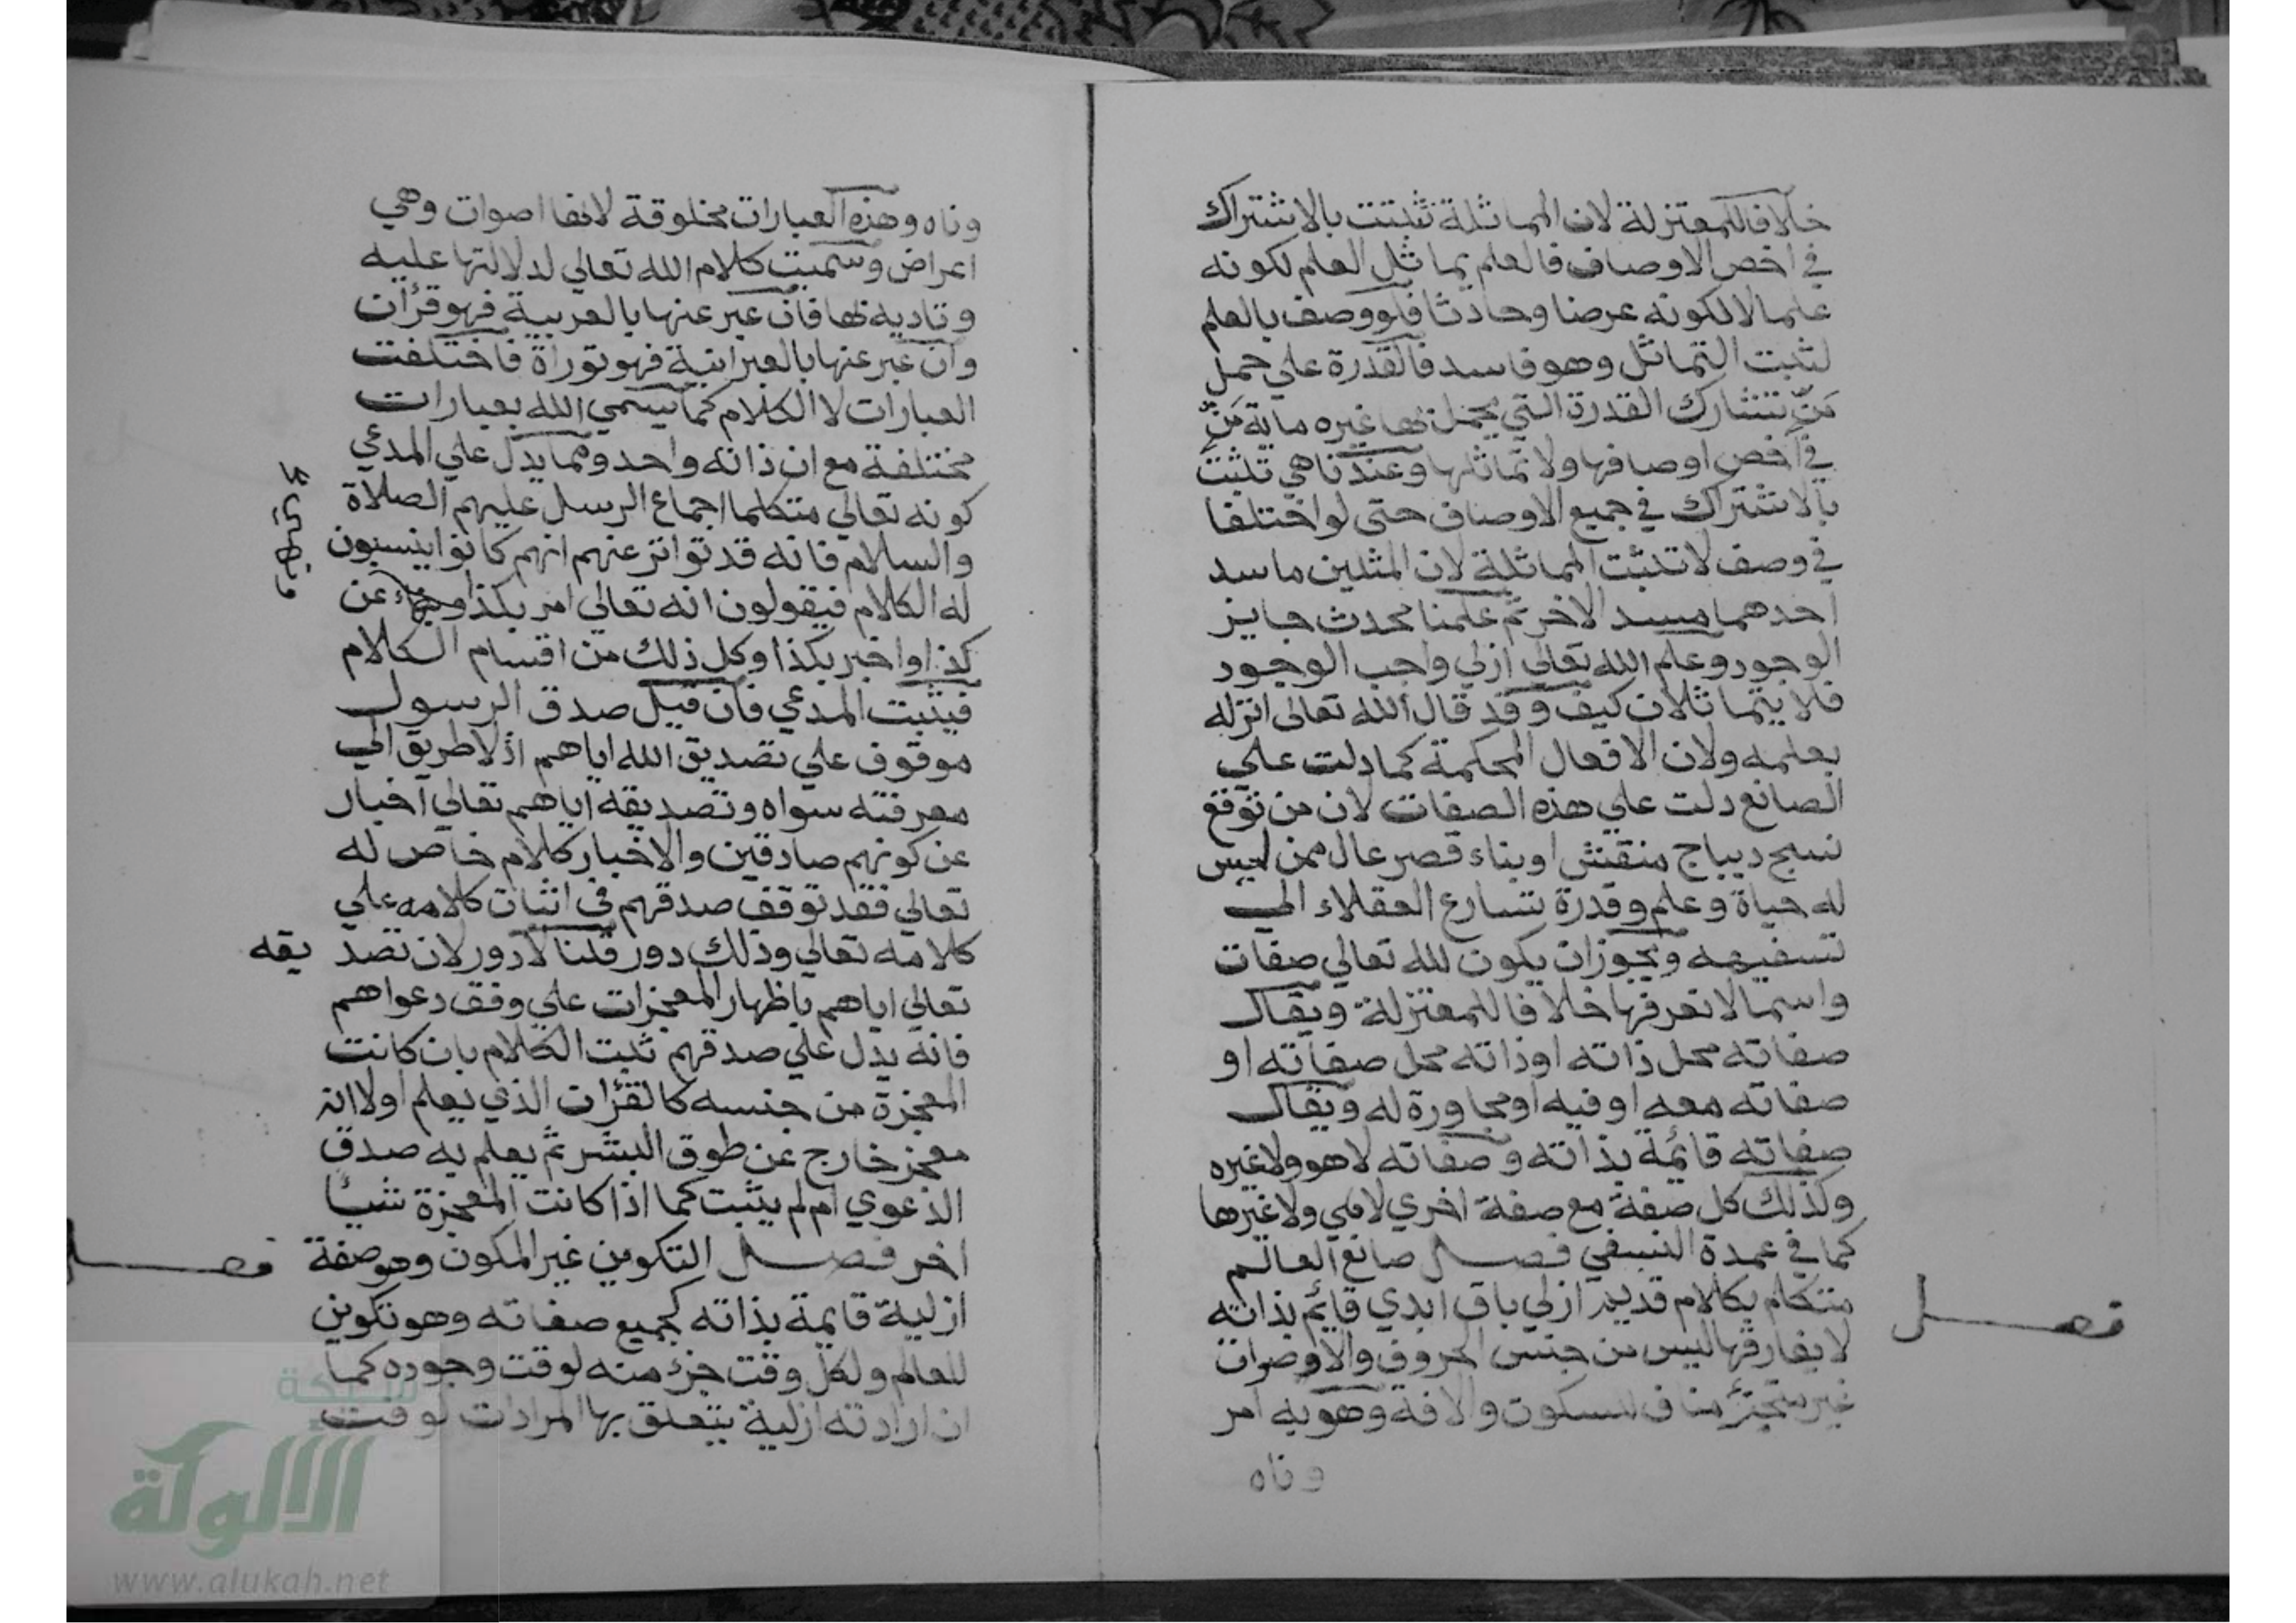 خلافا للمعتزلة لان المماثلة تثبت بالاشتراك
في اخص الاوصاف فالعلم يماثل العلم لكونه
علما لا لكونه عرضا وحادثا فلو وصف بالعلم
لثبت التماثل وهو فاسد فالقدرة علي حمل
مَنّ تشارك القدرة التي يحمل بها غيره ماية مَنّ
في اخص اوصافها ولا تماثلها وعندنا هي تثبت
بالاشتراك في جميع الاوصاف حتى لو اختلفا
في وصف لا تثبت المماثلة لان المثلين ما سد
احدهما مسد الاخر ثم علمنا محدث جايز
الوجود وعلم الله تعالي ازلي واجب الوجود
فلا يتماثلان كيف وقد قال الله تعالى انزله
بعلمه ولان الافعال المحكمة كما دلت علي
الصانع دلت علي هذه الصفات لان من توقع
نسج ديباج منقش او بناء قصر عال ممن ليس
له حياة وعلم وقدرة تسارع العقلاء الي
تسفيهه ويجوز ان يكون لله تعالي صفات
واسما لا نعرفها خلافا للمعتزلة ويقال
صفاته محل ذاته او ذاته محل صفاته او
صفاته معه او فيه او مجاورة له ويقال
صفاته قائمة بذاته وصفاته لا هو ولا غيره
وكذلك كل صفة مع صفة اخري لا هي ولا غيرها
كما في عمدة النسفي فصل صانع العالم
متكلم بكلام قديم ازلي باق ابدي قائم بذاته
لا يفارقها ليس من جنس الحروف والاوصوات
غير متجزئ مناف للسكون والافة وهو به امر
وناه
فصل
وناه وهذه العبارات مخلوقة لانها اصوات وهي
اعراض وسميت كلام الله تعالي لدلالتها عليه
وتاديه بها فان عبر عنها بالعربية فهو قرأن
وان عبر عنها بالعبرانية فهو توراة فاختلفت
العبارات لا الكلام كما يسمي الله بعبارات
مختلفة مع ان ذاته واحد ومما يدل علي المدعي
كونه تعالي متكلما اجماع الرسل عليهم الصلاة
والسلام فانه قد تواتر عنهم انهم كانوا ينسبون
له الكلام فيقولون انه تعالي امر بكذا عن
كذا واخبر بكذا وكل ذلك من اقسام الكلام
فيثبت المدعي فان قيل صدق الرسول
موقوف علي تصديق الله اياهم اذ لا طريق الي
معرفته سواه وتصديقه اياهم تعالي اخبار
عن كونهم صادقين والاخبار كلام خاص له
تعالي فقد توقف صدقهم في اثبات كلامه علي
كلامه تعالي وذلك دور قلنا لا دور لان تصديقه
تعالي اياهم باظهار المعجزات علي وفق دعواهم
فانه يدل علي صدقهم ثبت الكلام بان كانت
المعجزة من جنسه كالقرأن الذي يعلم اولا انه
معجز خارج عن طوق البشر ثم يعلم به صدق
الدعوي ام لم يثبت كما اذا كانت المعجزة شيأ
اخر فصل التكوين غير المكون وهو صفة
ازلية قايمة بذاته كجميع صفاته وهو تكوين
للعالم ولكل وقت جزء منه لوقت وجوده كما
ان ارادته ازلية يتعلق بها المرادات لوقت
فصل
شبكة
الألوكة
www.alukah.net